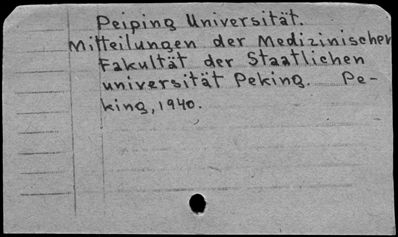 Peiping Universität.
Mitteilungen der Medizinischen
Fakultät der Staatlichen
universität Peking. Pe-
king, 1940.